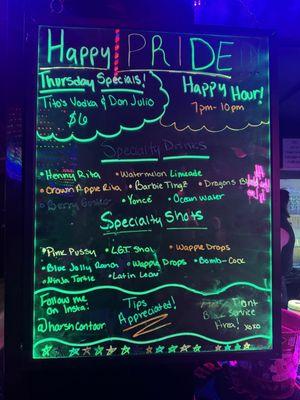 Happy PRIDE
Thursday Specials!
Tito's Vodka & Don Julio
$6
Happy Hour!
7pm-10pm
Specialty Drinks
• Henny Rita • Watermelon Limeade
• Crown Apple Rita • Barbie Tingz • Dragons
• Berry • Yoncé • Ocean Water
Specialty Shots
• Pink Pussy • LGT Shot • Wapple Drops
• Blue Jolly Ranch • Wappy Drops • Bomb-Cock
• Ninja Turtle • Latin Lover
Follow me
on Insta!
@harshcontour
Tips
Appreciated!
Dont
Service
Area! xoxo